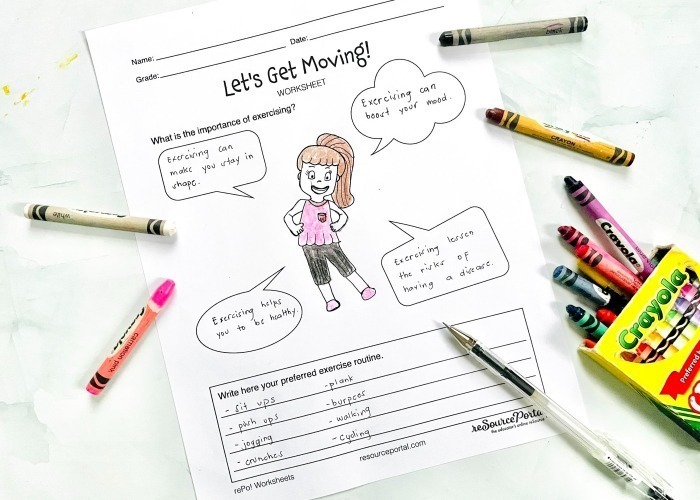 Name:
Date:
Grade:
Let's Get Moving!
WORKSHEET
What is the importance of exercising?
Exercising can
make you stay in
shape.
Exercising can
boost your mood.
Exercising lessen
the risks of
having a disease.
Exercising helps
you to be healthy.
Write here your preferred exercise routine.
- sit ups
- push ups
- jogging
- crunches
- plank
- burpees
- walking
- cycling
reSourcePortal
the educator's online resource
resourceportal.com
rePo! Worksheets
white
carnation pink
CRAYON
Crayola
Crayola
Preferred